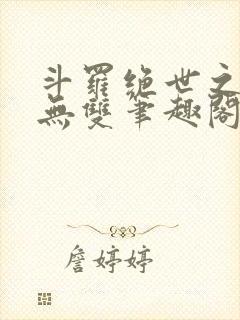 斗羅絶世之
無雙筆趣閣
詹婷婷